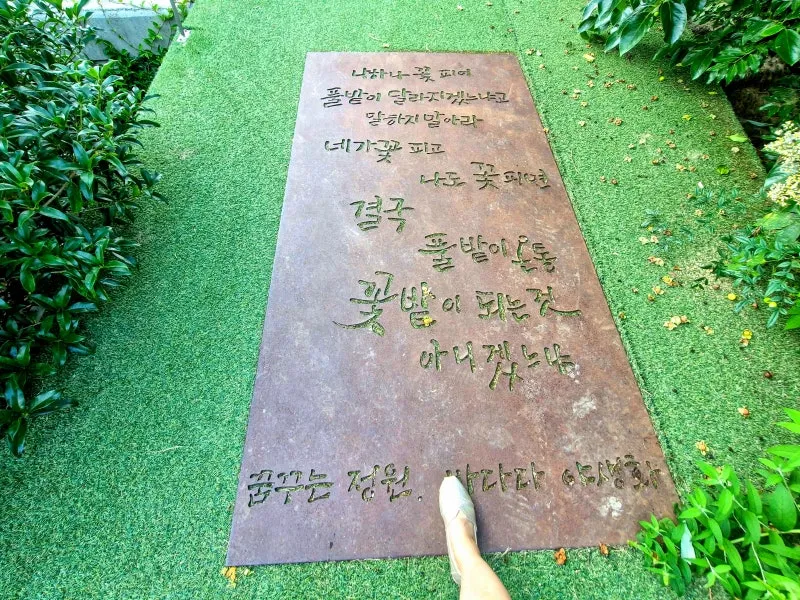 나하나 꽃 피어
풀밭이 달라지겠느냐고
말하지 말아라
네가 꽃 피고
나도 꽃 피면
결국
풀밭이 온통
꽃밭이 되는 것
아니겠느냐
꿈꾸는 정원. 야생화